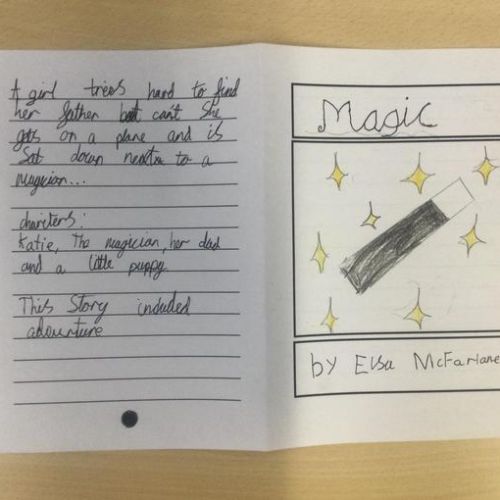 A girl trieos hard to find
her father but can't She
gets on a plane and is
Sat down next to a
magician...
charicters:
Katie, The magician, her dad
and a little puppy.
This Story included
adventure
Magic
by Elsa McFarlane